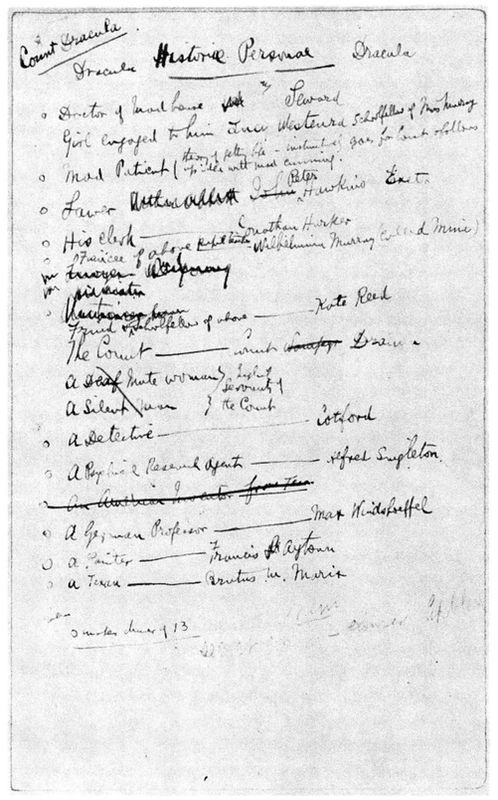 Count Dracula
Dracula Historiae Personae Dracula
Doctor of Mad house Seward
Girl engaged to him Lucy Westenra Schoolfellow of Miss Murray
Mad Patient (theory of getting life - instinctively goes for Count & follows
up idea with mad cunning.
Lawer John Peter Hawkins Exeter
His Clerk ——— Jonathan Harker
Fiancee of above Wilhelmina Murray (called Mina)
Friend & schoolfellow of above ——— Kate Reed
The Count ——— Count Wampyr Dracula
A Deaf Mute woman } English
A Silent Man } Servants of
the Count
A Detective ——— Cotford
A Psychical Research Agent ——— Alfred Singleton
An American Inventor from Texas
A German Professor ——— Max Windshoeffel
A Painter ——— Francis Aytown
A Texan ——— Brutus M. Marix
makes dinner of 13